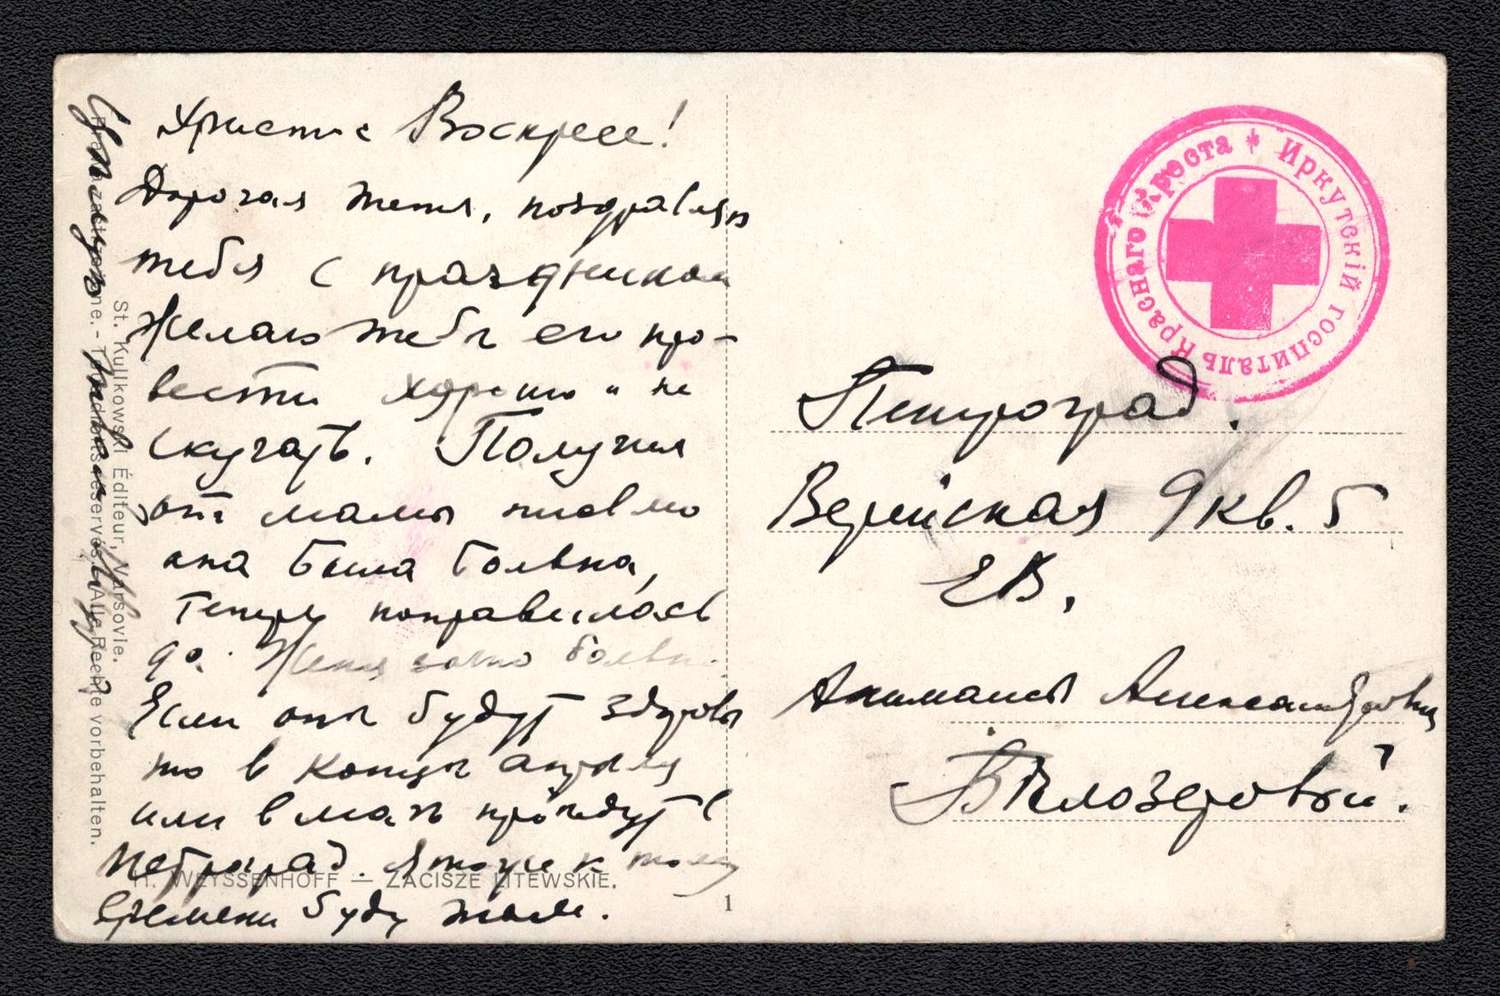 Христос Воскресе!
Дорогая тетя, поздравляю
тебя с праздником
Желаю тебе его про-
вести хорошо и не
скучать. Получил
от мамы письмо
она была больна,
теперь поправилась
да. Женя больна.
Если они будут здоровы
то в конце апреля
или в мае приедут в
Петроград. Я тоже к тому
времени буду там.
Целую
St. Kulikowski Éditeur, Varsovie.
Alle Rechte vorbehalten.
H. WEYSSENHOFF — ZACISZE LITEWSKIE.
1
Иркутскій госпиталь Краснаго Креста
Петроград.
Верейская 9 кв. 5
Е В.
Александровне
Бѣлозеровой.